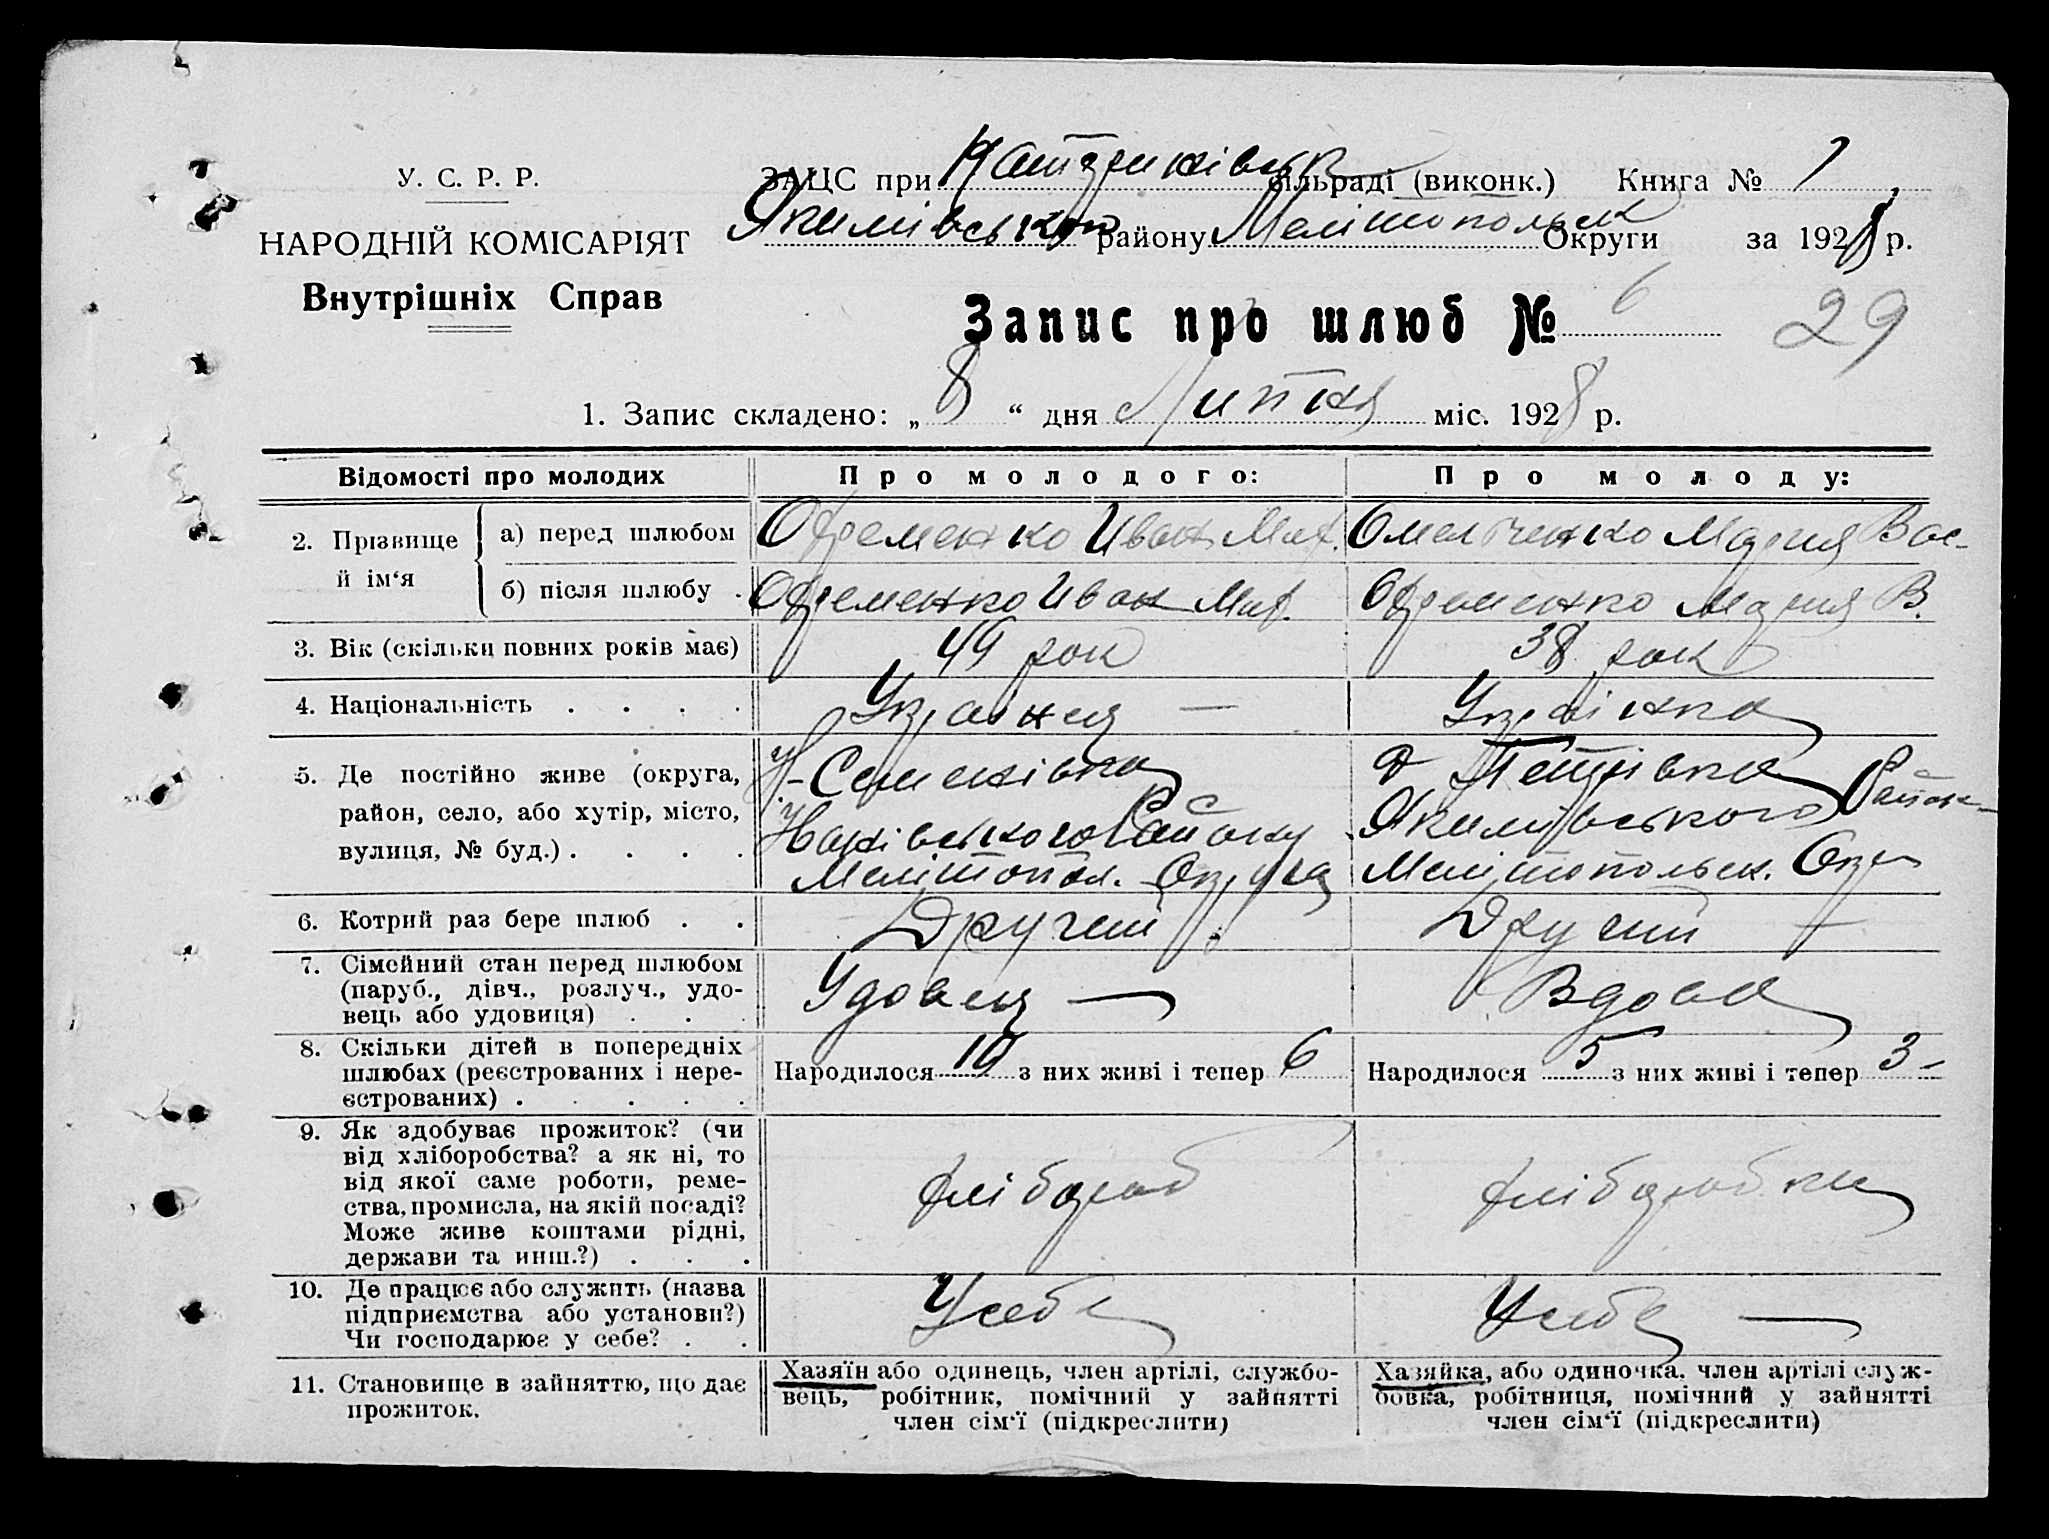 У. С. Р. Р.
НАРОДНІЙ КОМІСАРІЯТ
Внутрішніх Справ
ЗАЦС при сільраді (виконк.) Книга № 1
Якимівськ району Мелітопольськ Округи за 1928 р.
Запис про шлюб № 6
29
1. Запис складено: „ 8 “ дня Липня міс. 1928 р.
Відомості про молодих Про молодого: Про молоду:
2. Прізвище й ім‘я
а) перед шлюбом Єфременко Иван Мит. Омельченко Мария Вас-
б) після шлюбу . Єфременко Иван Мит. Єфременко Мария В.
3. Вік (скільки повних років має) 49 рок 38 рок
4. Національність . . . . Українец — Українка
5. Де постійно живе (округа, район, село, або хутір, місто, вулиця, № буд.) . . . .
- Семенівка
Району
Мелітопол. Округа
Якимівського Район-
Мелітопольськ. Окр
6. Котрий раз бере шлюб . . Другий Другий —
7. Сімейний стан перед шлюбом
(паруб., дівч., розлуч., удо-
вець або удовиця) . . .
Удовец — Вдова
8. Скільки дітей в попередніх
шлюбах (реєстрованих і нере-
єстрованих) . . . . .
Народилося 10 з них живі і тепер 6 Народилося 5 з них живі і тепер 3 -
9. Як здобуває прожиток? (чи
від хліборобства? а як ні, то
від якої саме роботи, реме-
ства, промисла, на якій посаді?
Може живе коштами рідні,
держави та инш.?) . . .
хлібороб хліборобка
10. Де працює або служить (назва
підприємства або установи?)
Чи господарює у себе? . .
У себе У себе —
11. Становище в зайняттю, що дає
прожиток.
Хазяїн або одинець, член артілі, службо-
вець, робітник, помічний у зайнятті
член сім‘ї (підкреслити)
Хазяйка, або одиночка, член артілі служ-
бовка, робітниця, помічний у зайнятті
член сім‘ї (підкреслити)